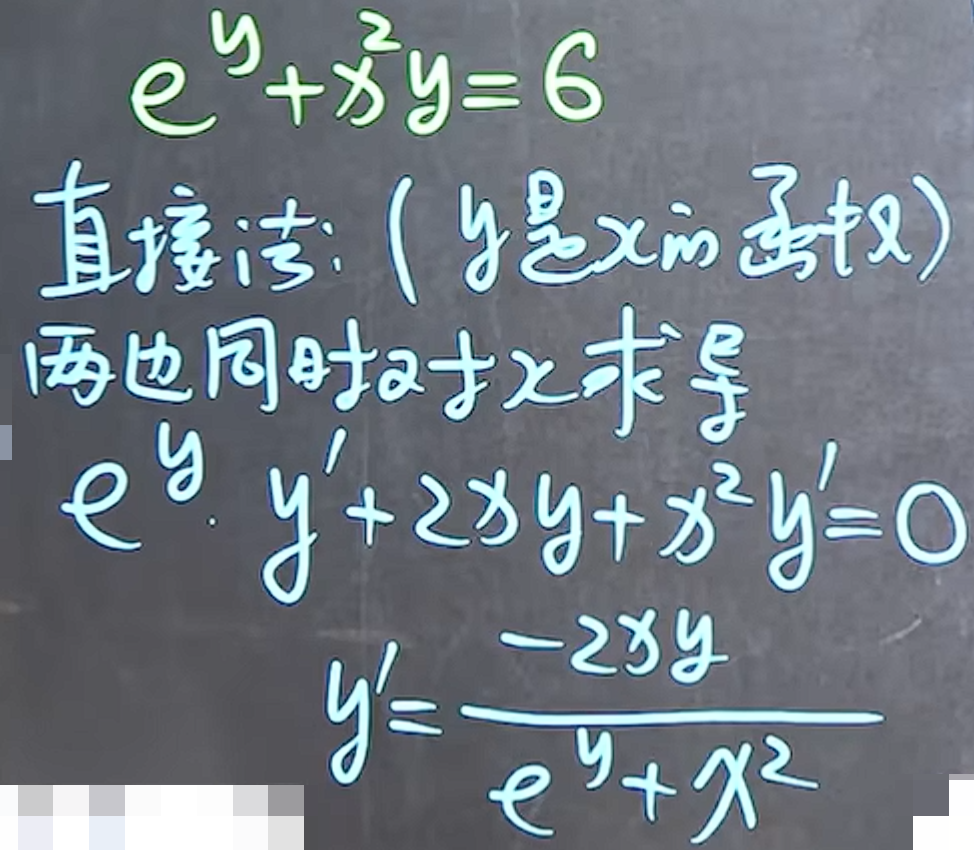 e^y+x²y=6
直接法:(y是x的函数)
两边同时对x求导
e^y·y′+2xy+x²y′=0
y′=\frac{-2xy}{e^y+x²}